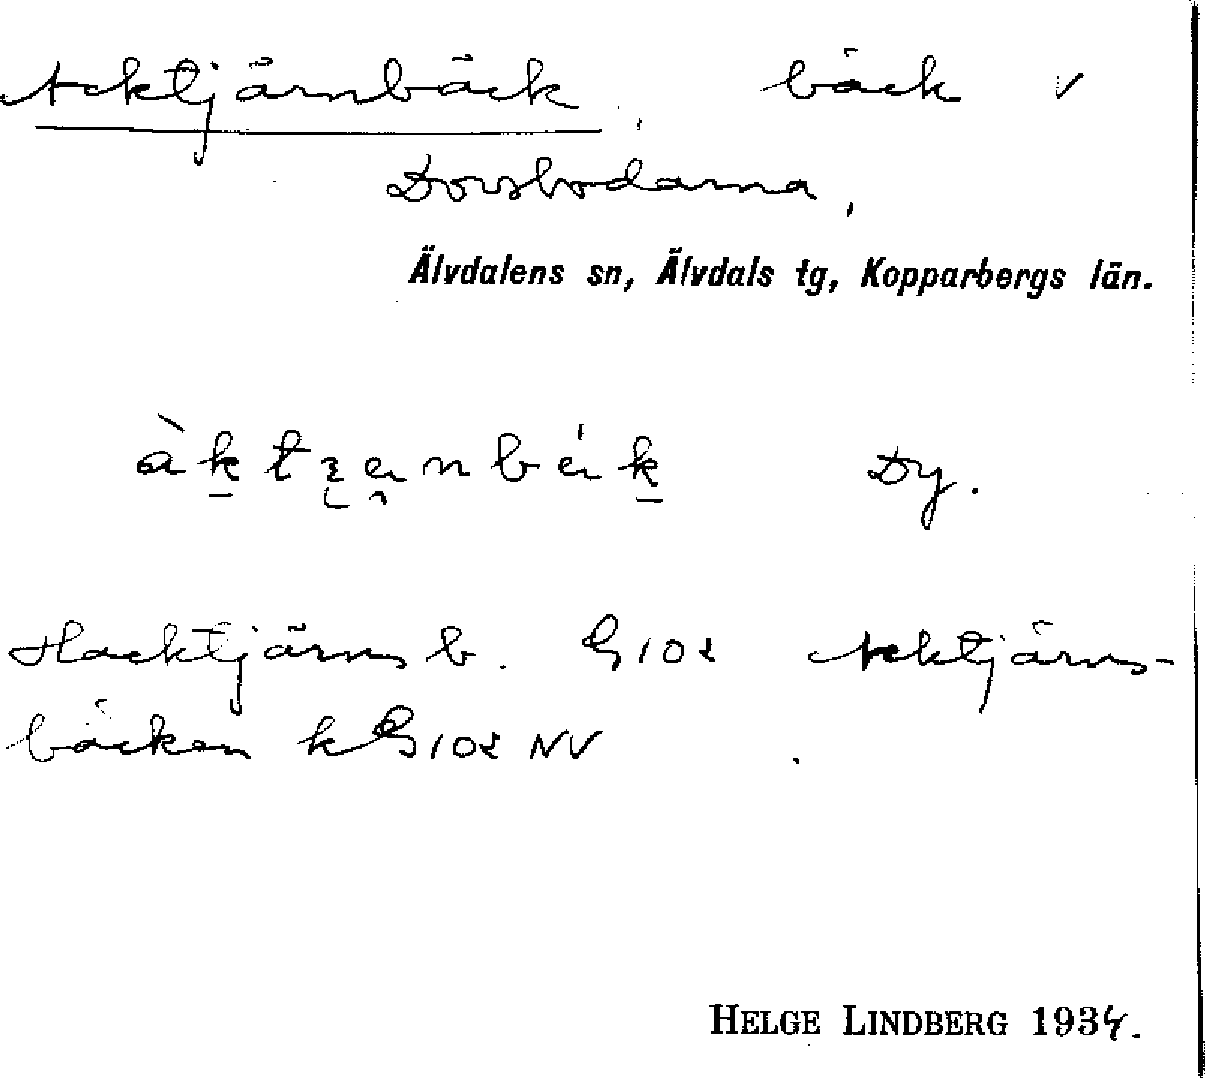 Acktjärnbäck, bäck v
Dovsbodarna,
Älvdalens sn, Älvdals tg, Kopparbergs län.
Dy.
Hacktjärns b. G102 Acktjärns-
bäcken kG102 NV
HELGE LINDBERG 1934.